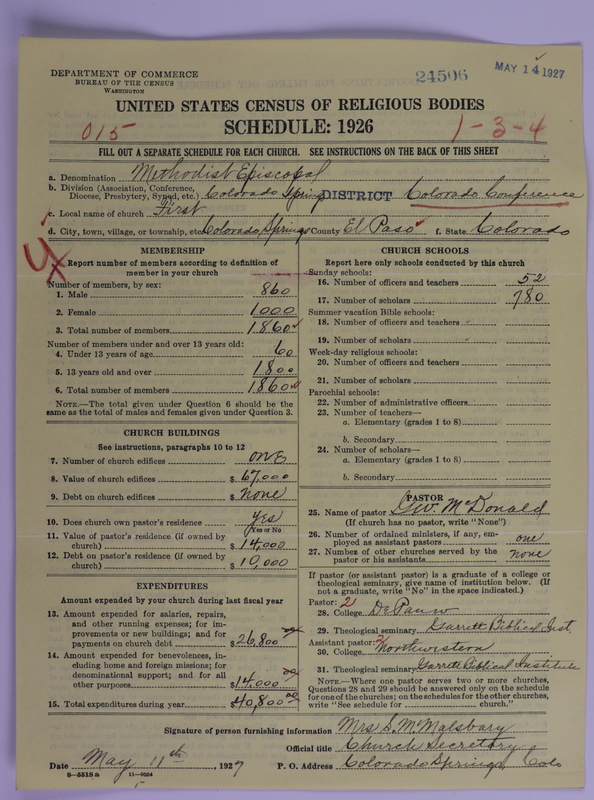 DEPARTMENT OF COMMERCE
BUREAU OF THE CENSUS
WASHINGTON
24506
MAY 14 1927
UNITED STATES CENSUS OF RELIGIOUS BODIES
SCHEDULE: 1926
015
1-3-4
FILL OUT A SEPARATE SCHEDULE FOR EACH CHURCH. SEE INSTRUCTIONS ON THE BACK OF THIS SHEET
a. Denomination Methodist Episcopal
b. Division (Association, Conference, Diocese, Presbytery, Synod, etc.) Colorado Spring DISTRICT Colorado Conference
c. Local name of church First
d. City, town, village, or township, etc. Colorado Springs County El Paso f. State Colorado
MEMBERSHIP
Report number of members according to definition of
member in your church
Number of members, by sex:
1. Male 860
2. Female 1000
3. Total number of members 1860
Number of members under and over 13 years old:
4. Under 13 years of age 60
5. 13 years old and over 1800
6. Total number of members 1860
NOTE.—The total given under Question 6 should be
same as the total of males and females given under Question 3.
CHURCH BUILDINGS
See instructions, paragraphs 10 to 12
7. Number of church edifices one
8. Value of church edifices $ 67,000
9. Debt on church edifices $ none
10. Does church own pastor's residence yes
Yes or No
11. Value of pastor's residence (if owned by
church) $ 14,000
12. Debt on pastor's residence (if owned by
church) $ 10,000
EXPENDITURES
Amount expended by your church during last fiscal year
13. Amount expended for salaries, repairs,
and other running expenses; for im-
provements or new buildings; and for
payments on church debt $ 26,800 00
14. Amount expended for benevolences, in-
cluding home and foreign missions; for
denominational support; and for all
other purposes $ 14,000 00
15. Total expenditures during year $ 40,800 00
CHURCH SCHOOLS
Report here only schools conducted by this church
Sunday schools:
16. Number of officers and teachers 52
17. Number of scholars 780
Summer vacation Bible schools:
18. Number of officers and teachers
19. Number of scholars
Week-day religious schools:
20. Number of officers and teachers
21. Number of scholars
Parochial schools:
22. Number of administrative officers
23. Number of teachers—
a. Elementary (grades 1 to 8)
b. Secondary
24. Number of scholars—
a. Elementary (grades 1 to 8)
b. Secondary
PASTOR
25. Name of pastor McDonald
(If church has no pastor, write "None")
26. Number of ordained ministers, if any, em-
ployed as assistant pastors one
27. Number of other churches served by the
pastor or his assistants none
If pastor (or assistant pastor) is a graduate of a college or
theological seminary, give name of institution below. (If
not a graduate, write "No" in the space indicated.)
Pastor: 2
28. College De Pauw
29. Theological seminary Garrett Biblical Inst.
Assistant pastor: 2
30. College Northwestern
31. Theological seminary Garrett Biblical Institute
NOTE.—Where one pastor serves two or more churches,
Questions 28 and 29 should be answered only on the schedule
for one of the churches; on the schedules for the other churches,
write "See schedule for church."
Signature of person furnishing information Mrs S. M. Malsbary
Official title Church Secretary
Date May 11th, 1927 P. O. Address Colorado Springs, Colo
8-5518 a 11-9264